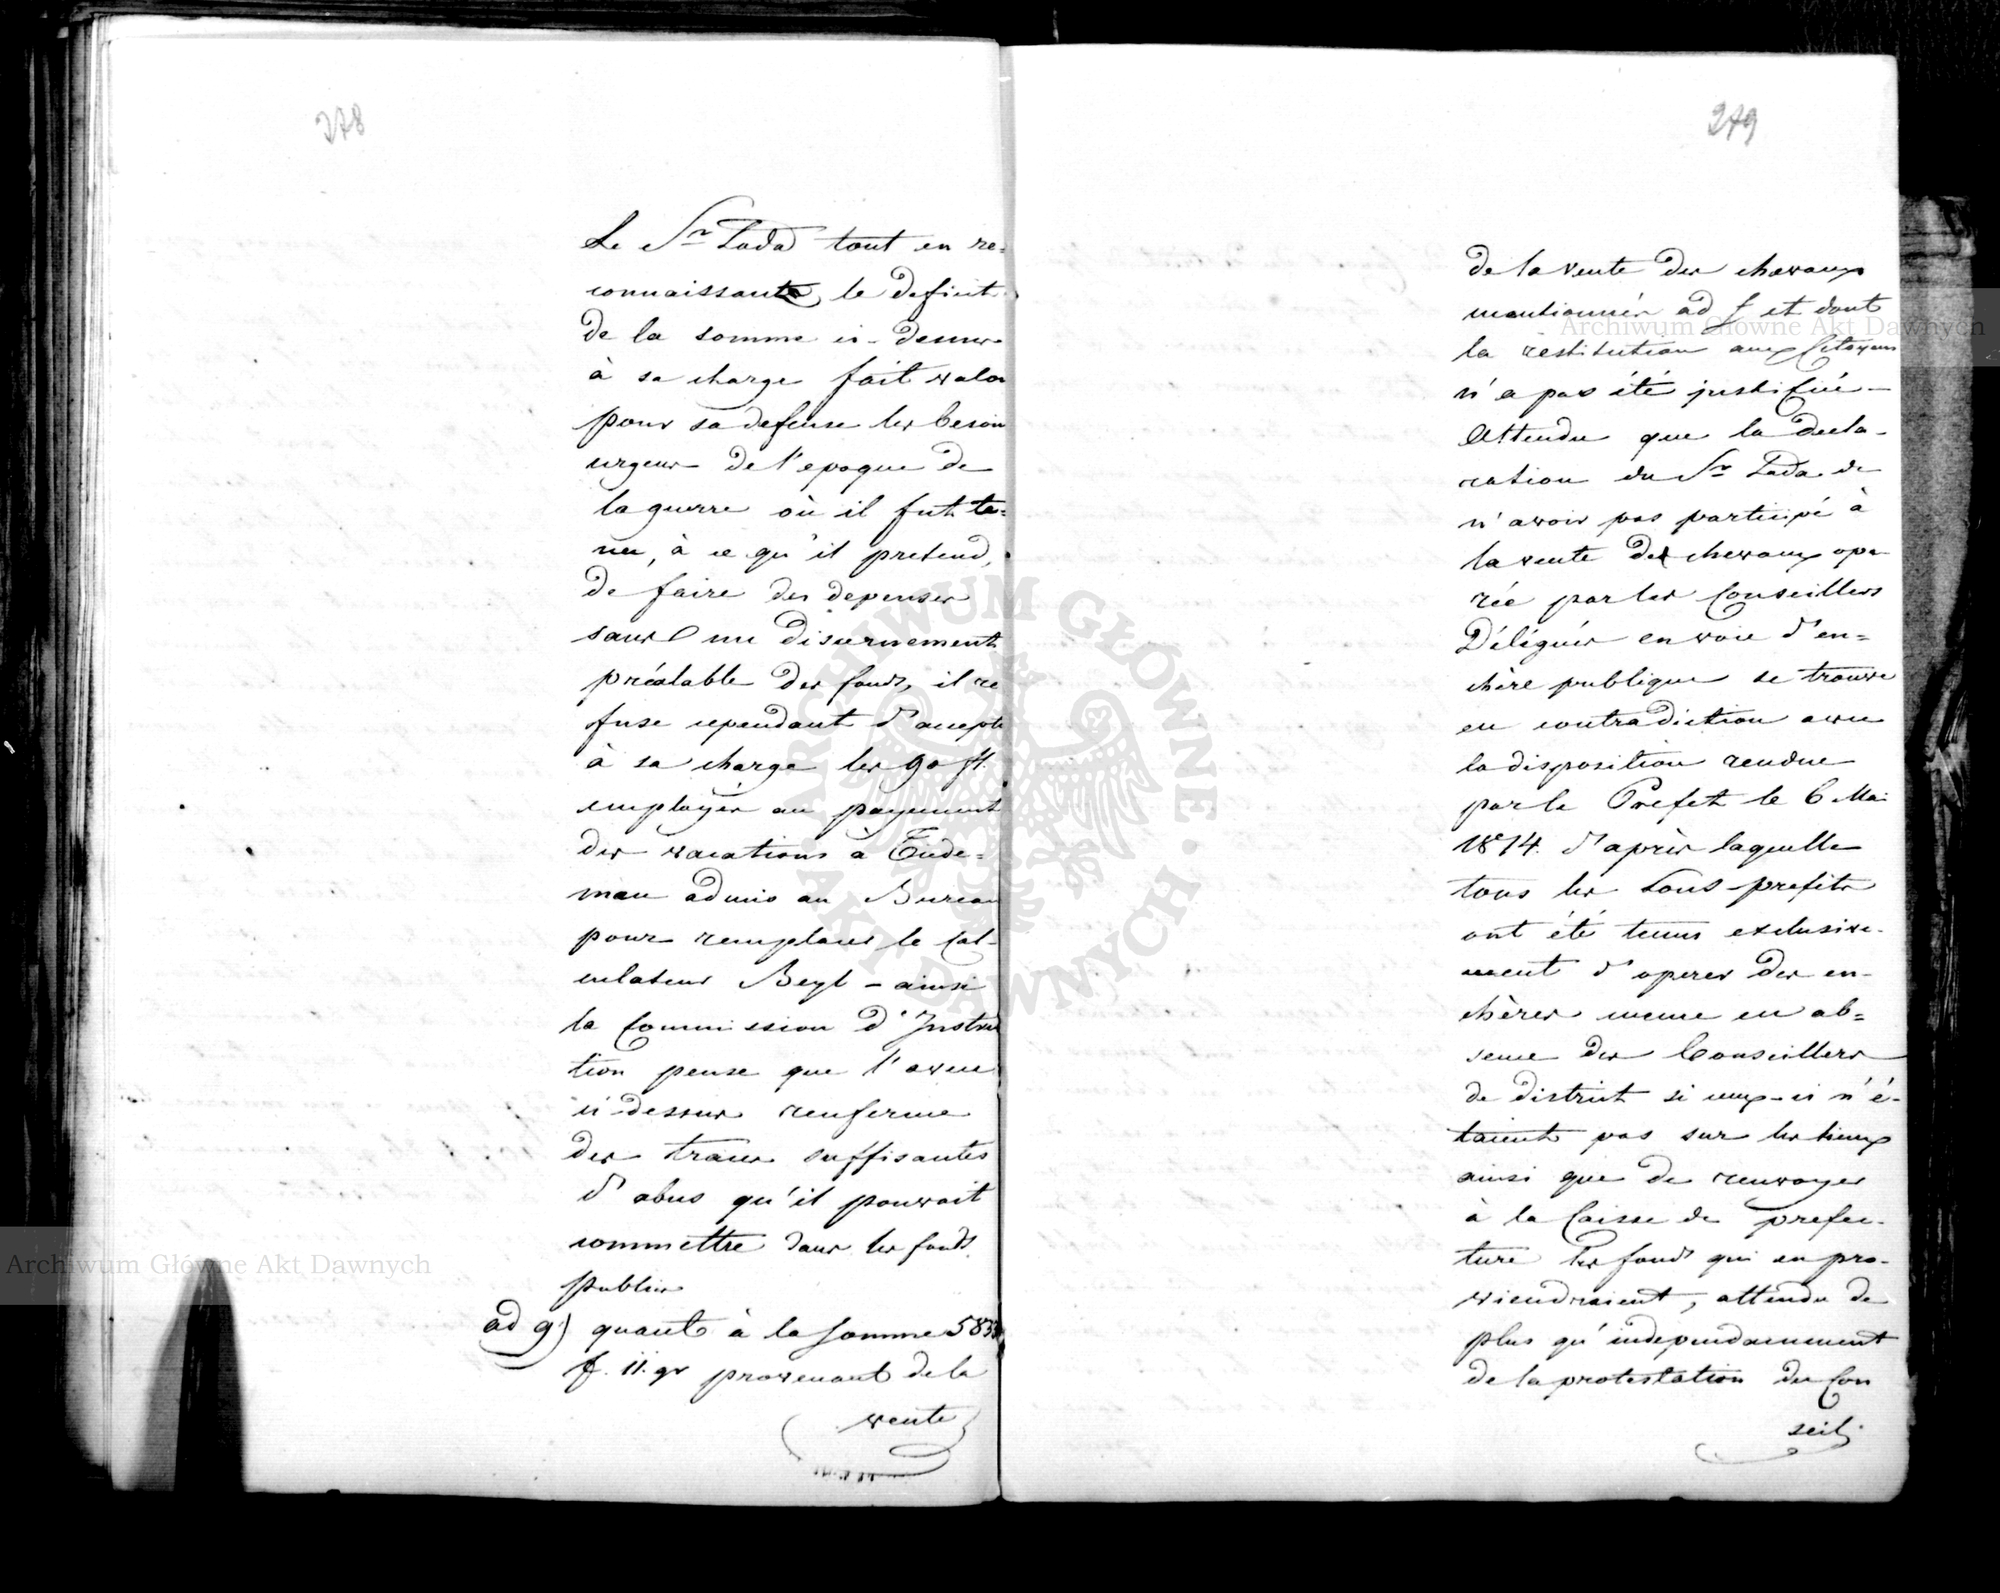 278
Le Sr Lada tout en re=
connaissant le deficit
de la somme ci-dessus
à sa charge fait valoi
pour sa defense les besoin
urgens de l'epoque de
la guerre où il fut te=
nu, à ce qu'il pretend,
de faire des depenses
sans un discernement
préalable des fonds, il re
fuse cependant d'accepte
à sa charge les 90 fl.
employés au payement
des vacations à
man admis au Bureau
pour remplacer le Cal-
culateur Beyl - ainsi
la Commission d'Instruc
tion pense que l'aveu
ci-dessus renferme
des traces suffisantes
d'abus qu'il pouvait
commettre dans les fonds
publics
ad g) quant à la somme 583
f. 11. gr provenant de la
vente
279
de la vente des chevaux
mentionnés ad f et dont
la restitution aux Citoyens
n'a pas été justifiée -
Attendu que la decla-
ration du Sr Lada de
n'avoir pas participé à
la vente des chevaux ope-
rée par les Conseillers
Délégués en voie d'en=
chère publique se trouve
en contradiction avec
la disposition rendue
par le Préfet le 6 Mai
1814. d'après laquelle
tous les Sous-prefets
ont été tenus exclusive-
ment d'operer des en-
chères meme en ab=
sence des Conseillers
de district si ceux-ci n'é-
taient pas sur les lieux
ainsi que de renvoyer
à la Caisse de prefec-
ture les fonds qui en pro-
viendraient, attendu de
plus qu'independamment
de la protestation du Con
seil
Archiwum Główne Akt Dawnych
Archiwum Główne Akt Dawnych
ARCHIWUM GŁÓWNE · AKT DAWNYCH ·